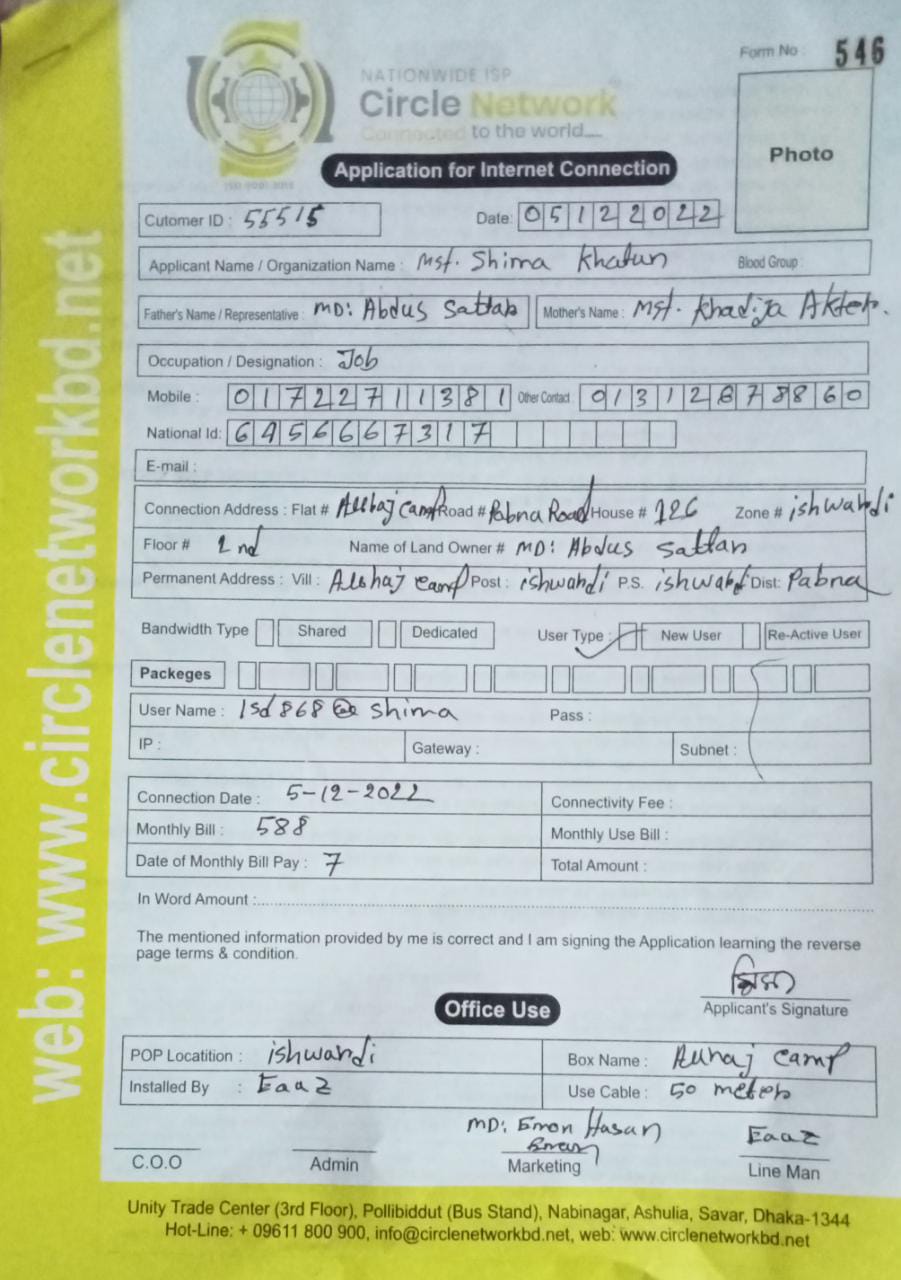 Form No : 546
NATIONWIDE ISP
Circle Network
Connected to the world....
ISO 9001:2015
Photo
Application for Internet Connection
Cutomer ID : 55515 Date: 05122022
Applicant Name / Organization Name : Mst. Shima Khatun Blood Group :
Father's Name / Representative : MD: Abdus Sattar Mother's Name : Mst. Khadija Akter.
Occupation / Designation : Job
Mobile : 01722711381 Other Contact : 01312878860
National Id: 6456667317
E-mail :
Connection Address : Flat # Road # Pabna Road House # 126 Zone # ishwardi
Floor # 2nd Name of Land Owner # MD: Abdus Sattar
Permanent Address : Vill : Camp Post : ishwardi P.S. ishwardi Dist: Pabna
Bandwidth Type Shared Dedicated User Type : New User Re-Active User
Packeges
User Name : Isd868 @ Shima Pass :
IP : Gateway : Subnet :
Connection Date : 5-12-2022 Connectivity Fee :
Monthly Bill : 588 Monthly Use Bill :
Date of Monthly Bill Pay : 7 Total Amount :
In Word Amount :
The mentioned information provided by me is correct and I am signing the Application learning the reverse
page terms & condition.
Applicant's Signature
Office Use
POP Locatition : ishwardi Box Name : Camp
Installed By : Eaaz Use Cable : 50 meter
MD: Emon Hasan Eaaz
C.O.O Admin Marketing Line Man
Unity Trade Center (3rd Floor), Pollibiddut (Bus Stand), Nabinagar, Ashulia, Savar, Dhaka-1344
Hot-Line: + 09611 800 900, info@circlenetworkbd.net, web: www.circlenetworkbd.net
web: www.circlenetworkbd.net